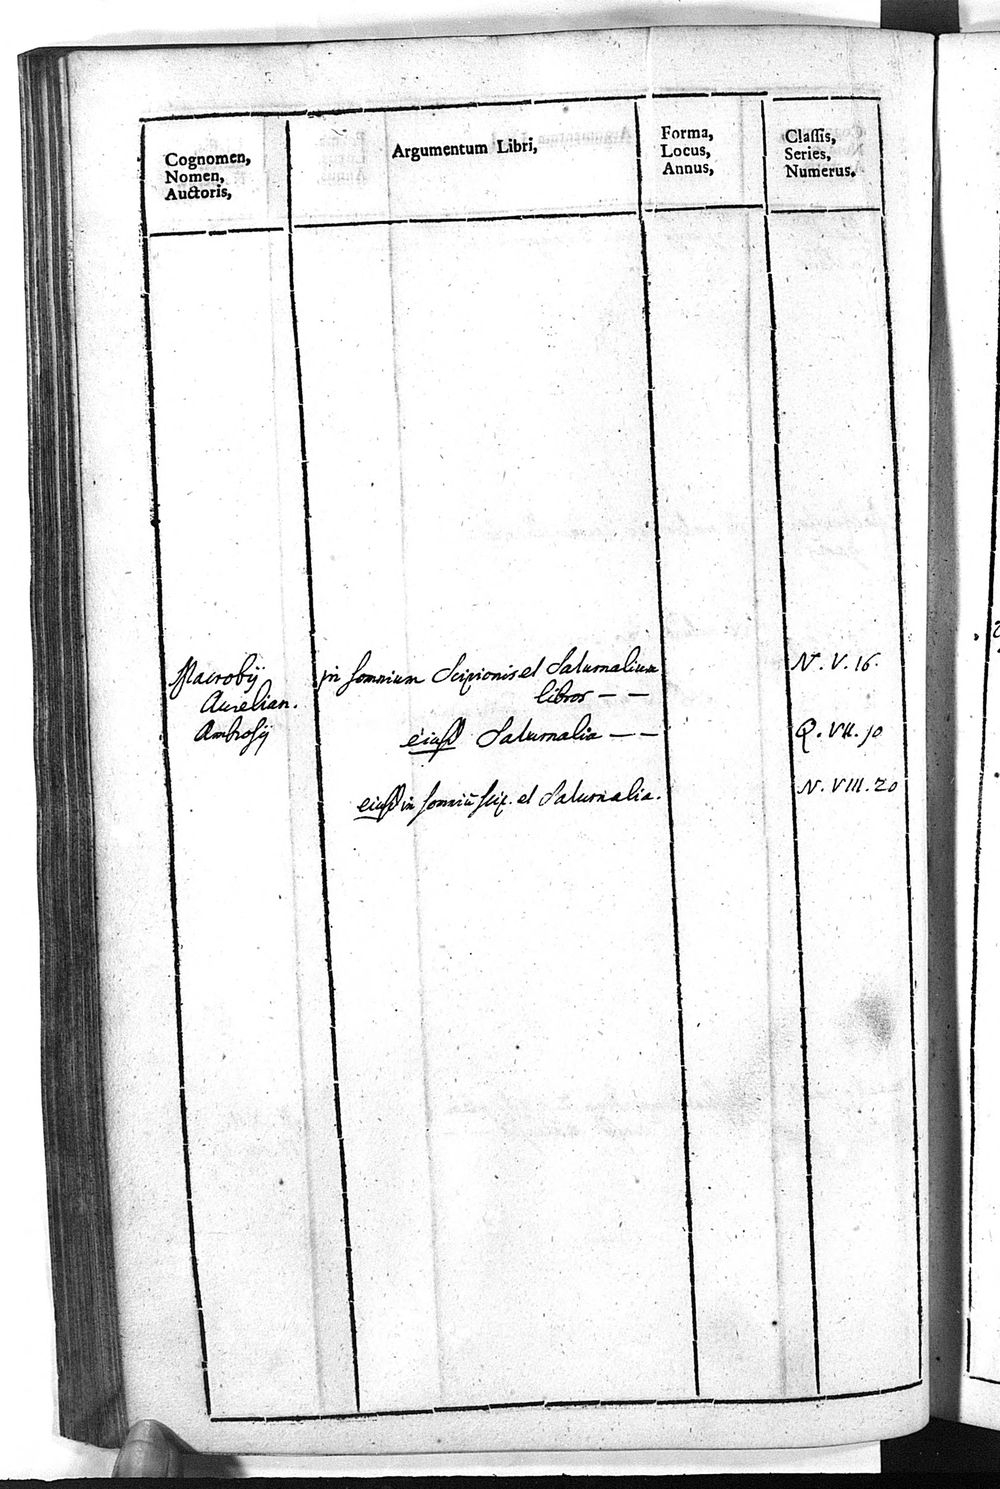 Cognomen,
Nomen,
Auctoris,
Argumentum Libri,
Forma,
Locus,
Annus,
Classis,
Series,
Numerus.
Macrobij
Aurelian.
Ambrosij
in somnium Scipionis et Saturnalium
libros — —
N. V. 16.
eiusd Saturnalia — —
Q. VII. 10
eiusd in somniū scip. et Saturnalia.
N. VIII. 20